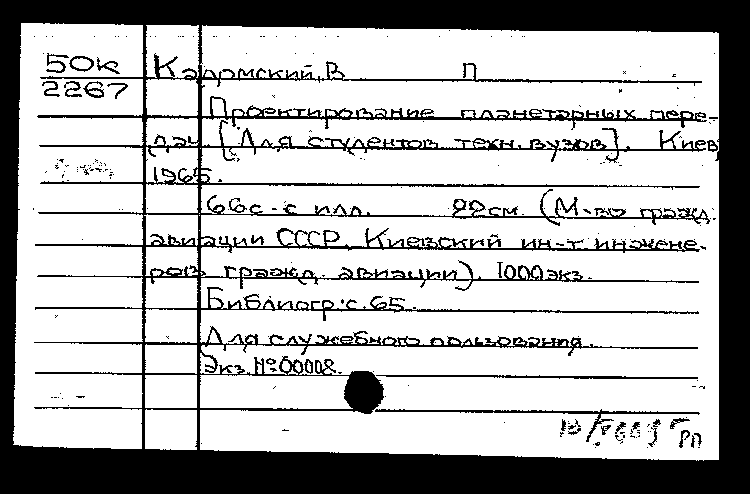 50к Кадомский, В П
2267
Проектирование планетарных пере-
дач. [Для студентов техн. вузов]. Киев,
1965.
66с. с илл. 22см. (М-во гражд.
авиации СССР. Киевский ин-т инжене-
ров гражд. авиации). 1000экз.
Библиогр.: с. 65.
Для служебного пользования.
Экз. № 00008.
РП